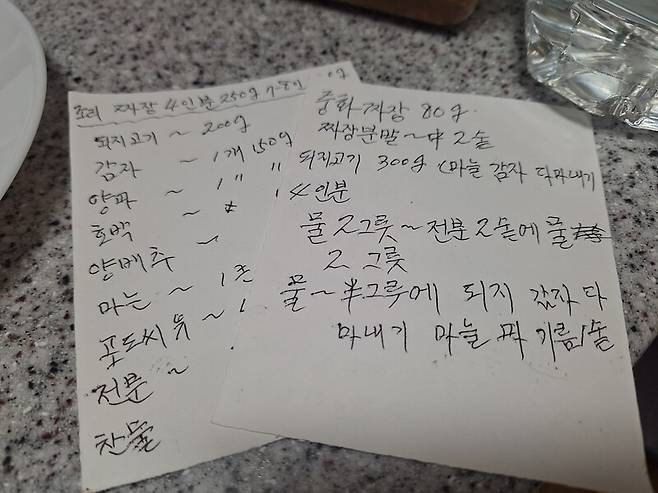 조리 짜장 4인분 250g 7-8인
돼지고기 ~ 200g
감자 ~ 1개 150g
양파 ~ 1 " "
호박 ~
양배추 ~
마늘 ~ 1
포도씨유 ~ 1
전분 ~
찬물
중화짜장 80g.
짜장분말 ~ 中 2술
되지고기 300g (마늘 감자 다마내기
4인분
물 2그릇 ~ 전분 2술에 물
2 그릇
물 ~ 半그릇에 되지 감자 다
마내기 마늘 파 기름 1술